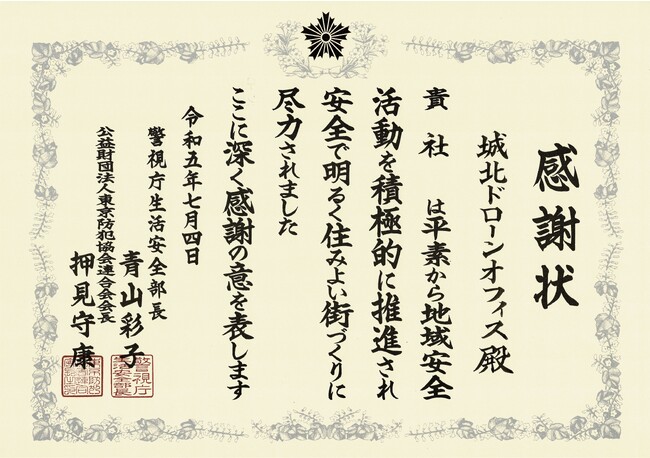 感謝状
城北ドローンオフィス殿
貴社は平素から地域安全
活動を積極的に推進され
安全で明るく住みよい街づくりに
尽力されました
ここに深く感謝の意を表します
令和五年七月四日
警視庁生活安全部長
青山彩子
警視庁生活安全部長
公益財団法人東京防犯協会連合会会長
押見守康